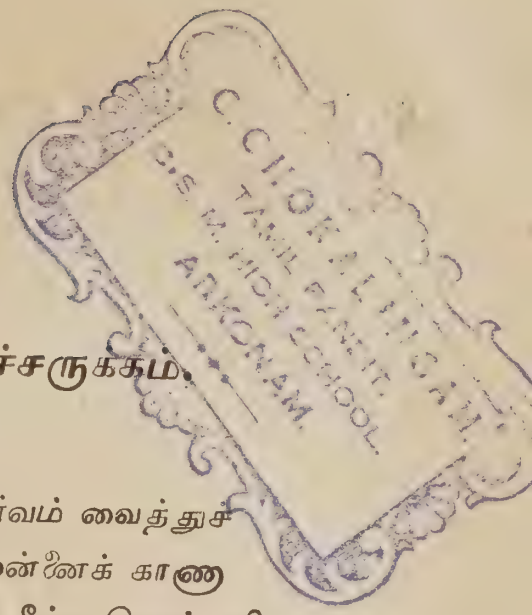 C. CHOKALINGAM
TAMIL PANDIT.
C.S.M. HIGH SCHOOL.
ARKONAM.
ச்சருக்கம்.
ர்வம் வைத்துச்
ன்னைக் காண